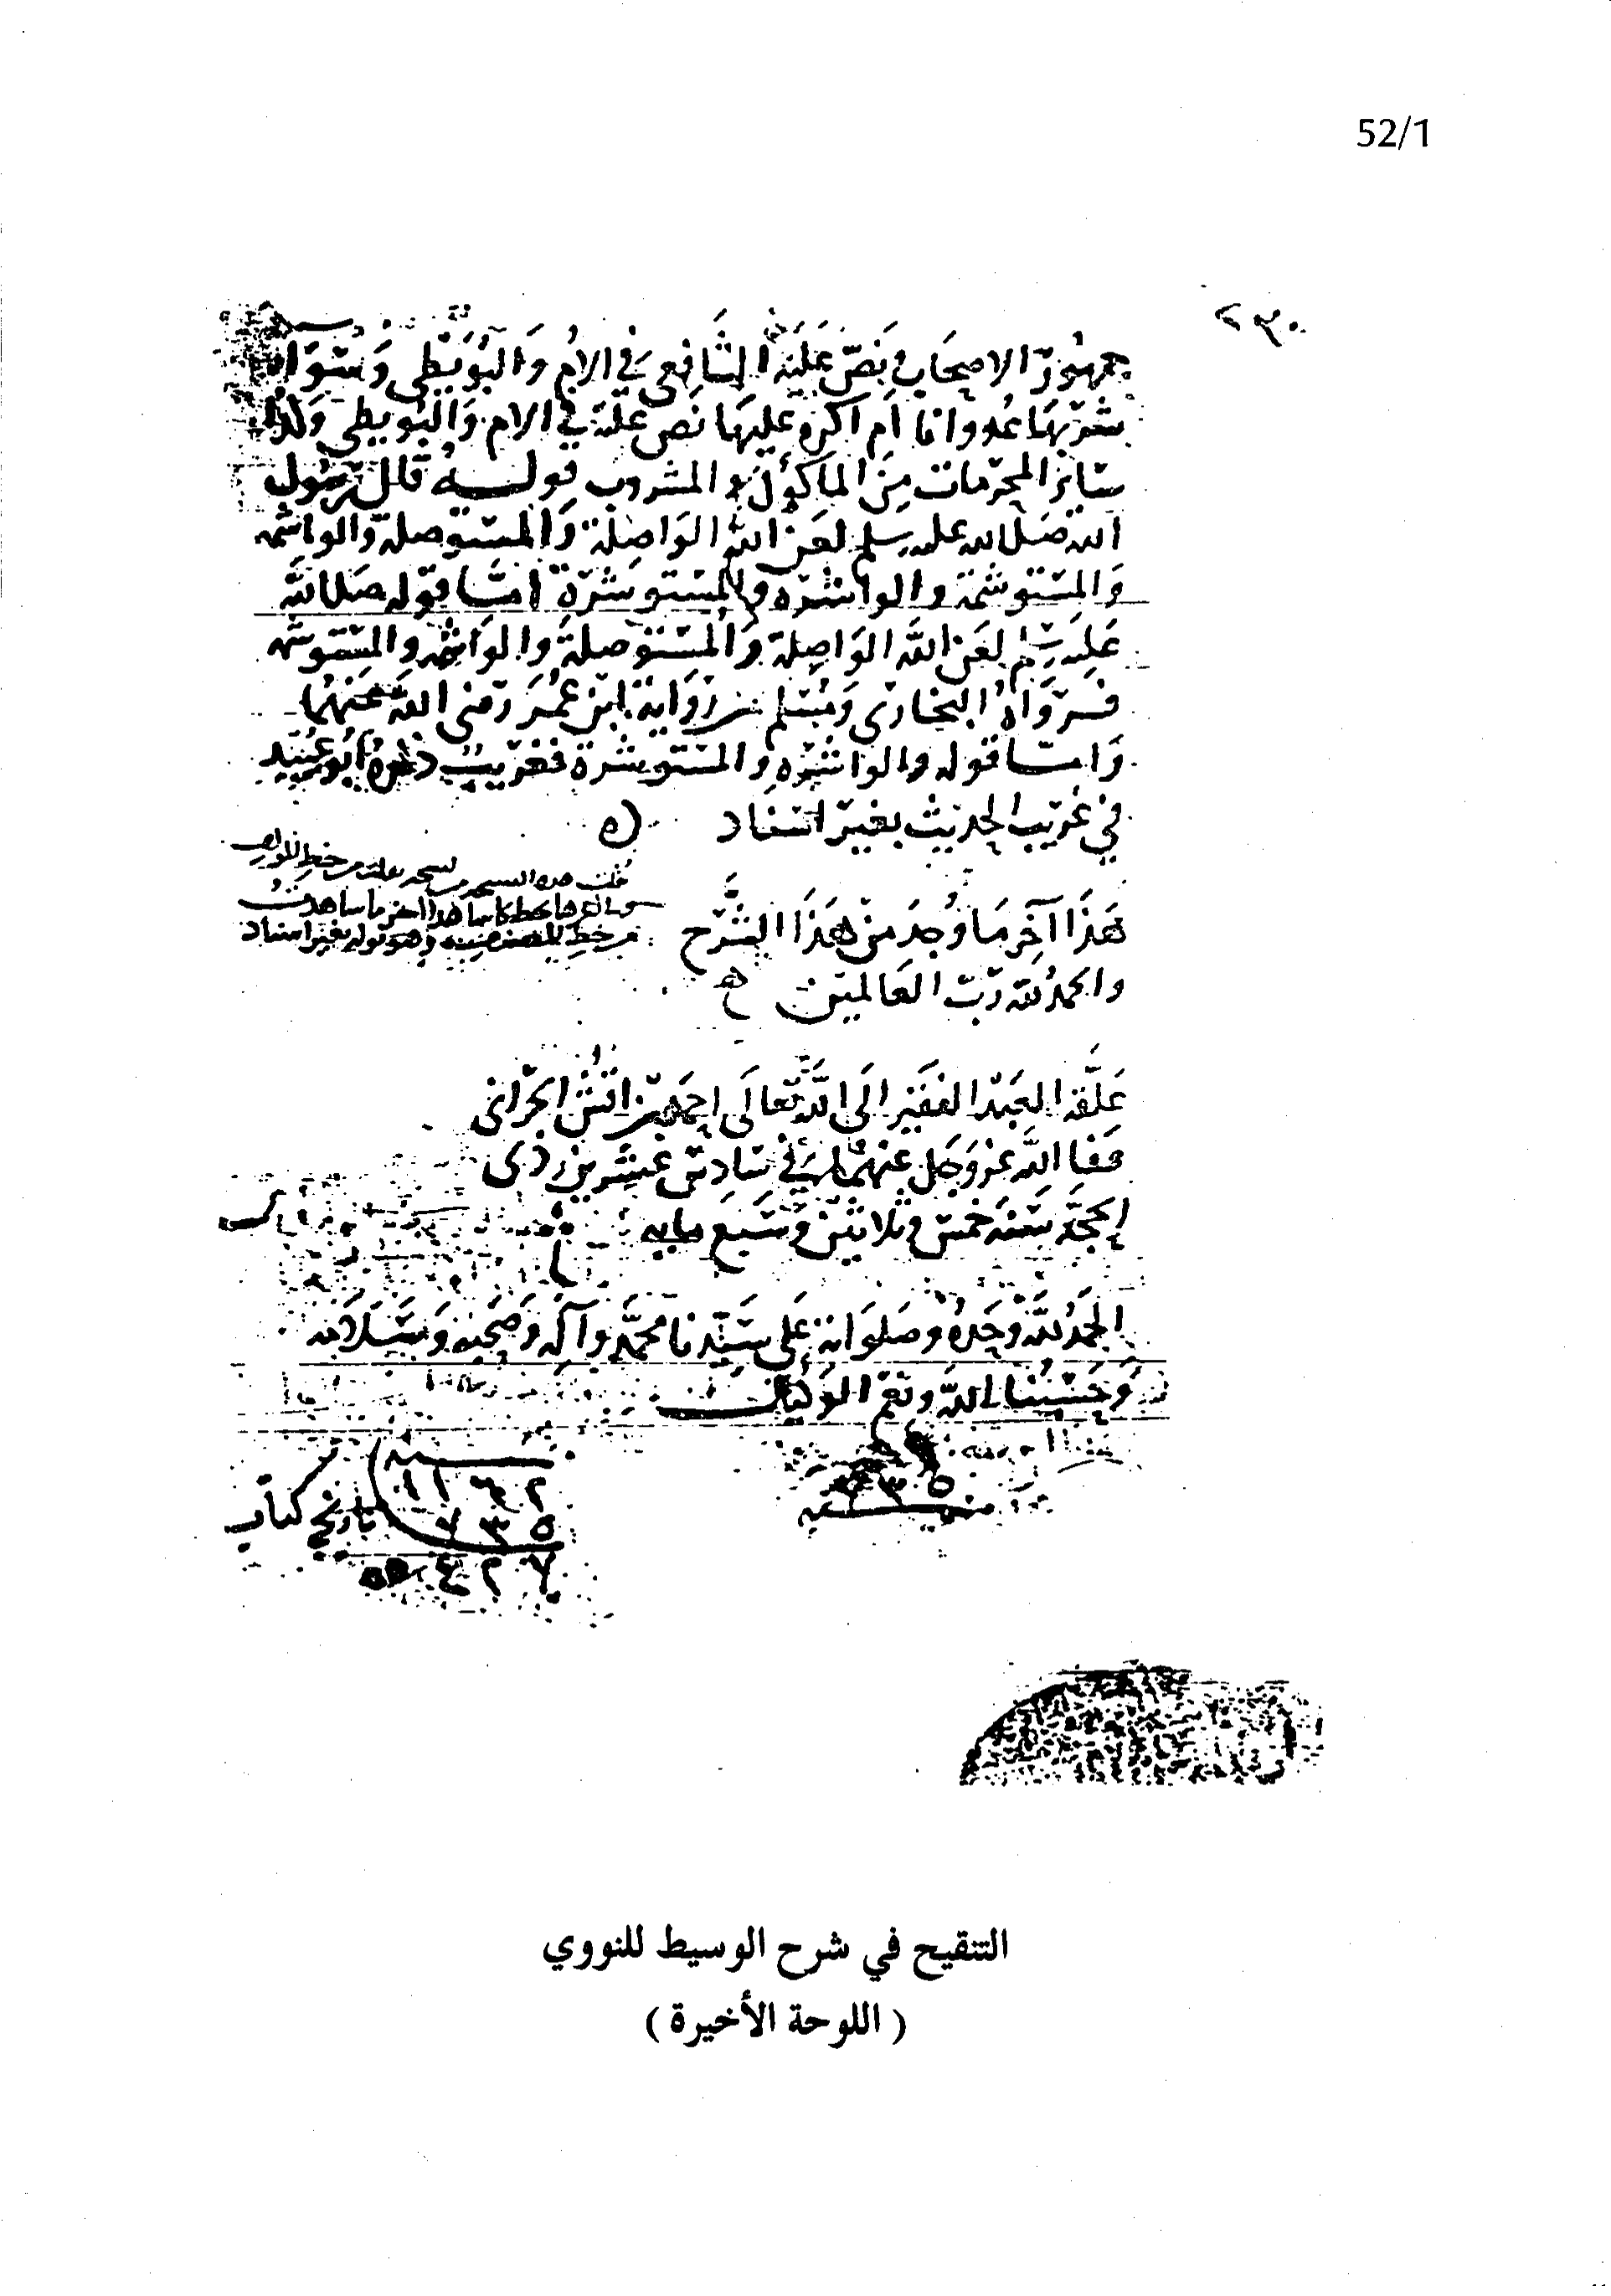 52/1
٢٣٠
جمهور الاصحاب نص عليه الشافعي في الام والبويطي وسوا
شربها عدوانا ام اكره عليها نص عليه في الام والبويطي وكذا
سائر المحرمات من الماكول والمشروب قوله قال رسول
الله صلى الله عليه وسلم لعن الله الواصلة والمستوصلة والواشمة
والمستوشمة والواشرة والمستوشرة اما قوله صلى الله
عليه وسلم لعن الله الواصلة والمستوصلة والواشمة والمستوشمة
فرواه البخاري ومسلم من رواية ابن عمر رضي الله عنهما
واما قوله والواشرة والمستوشرة فغريب ذكره ابو عبيد
في غريب الحديث بغير اسناد ه
قلت هذه النسخة من نسخة نقلت من خط المولف
وقال اخرها بخط كاتبها هذا اخر ما شاهدت
من خط المصنف وهو قوله بغير اسناد
هذا آخر ما وجد من هذا الشرح
والحمد لله رب العالمين
علقه العبد الفقير الى الله تعالى احمد بن اقش الحراني
عفا الله عز وجل عنهما في سادس عشرين ذي
الحجة سنة خمس وثلاثين وسبع مايه
الحمد لله وحده وصلواته على سيدنا محمد وآله وصحبه وسلامه
وحسبنا الله ونعم الوكيل
٧٣٥
سنة
١١٦٢
٧٣٥ تاريخ كتاب
٤٢٧
التنقيح في شرح الوسيط للنووي
( اللوحة الأخيرة )